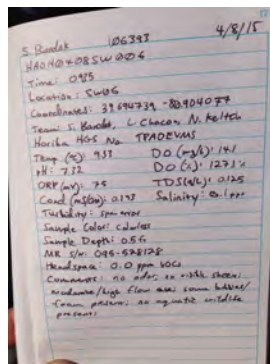 4/8/15
S. Bandek 106393
HA0N04085W006
Time: 0935
Location: SW06
Coordinates: 39.694739 -80.904077
Team: S. Bandek, L. Chacon, N. Keltch
Horiba HGS No
Temp (°C): 9.53 DO (mg/L): 14.1
pH: 7.32 DO (%): 127.3%
ORP (mV): 75 TDS (g/L): 0.125
Cond (mS/cm): 0.193 Salinity: 0.1 ppt
Turbidity: error
Sample Color: colorless
Sample Depth: 0.5 ft
MR S/N: 095-528128
Headspace: 0.0 ppm VOCs
Comments: no odor, no visible sheen,
moderate/high flow some bubbles/
foam present, no aquatic wildlife
present